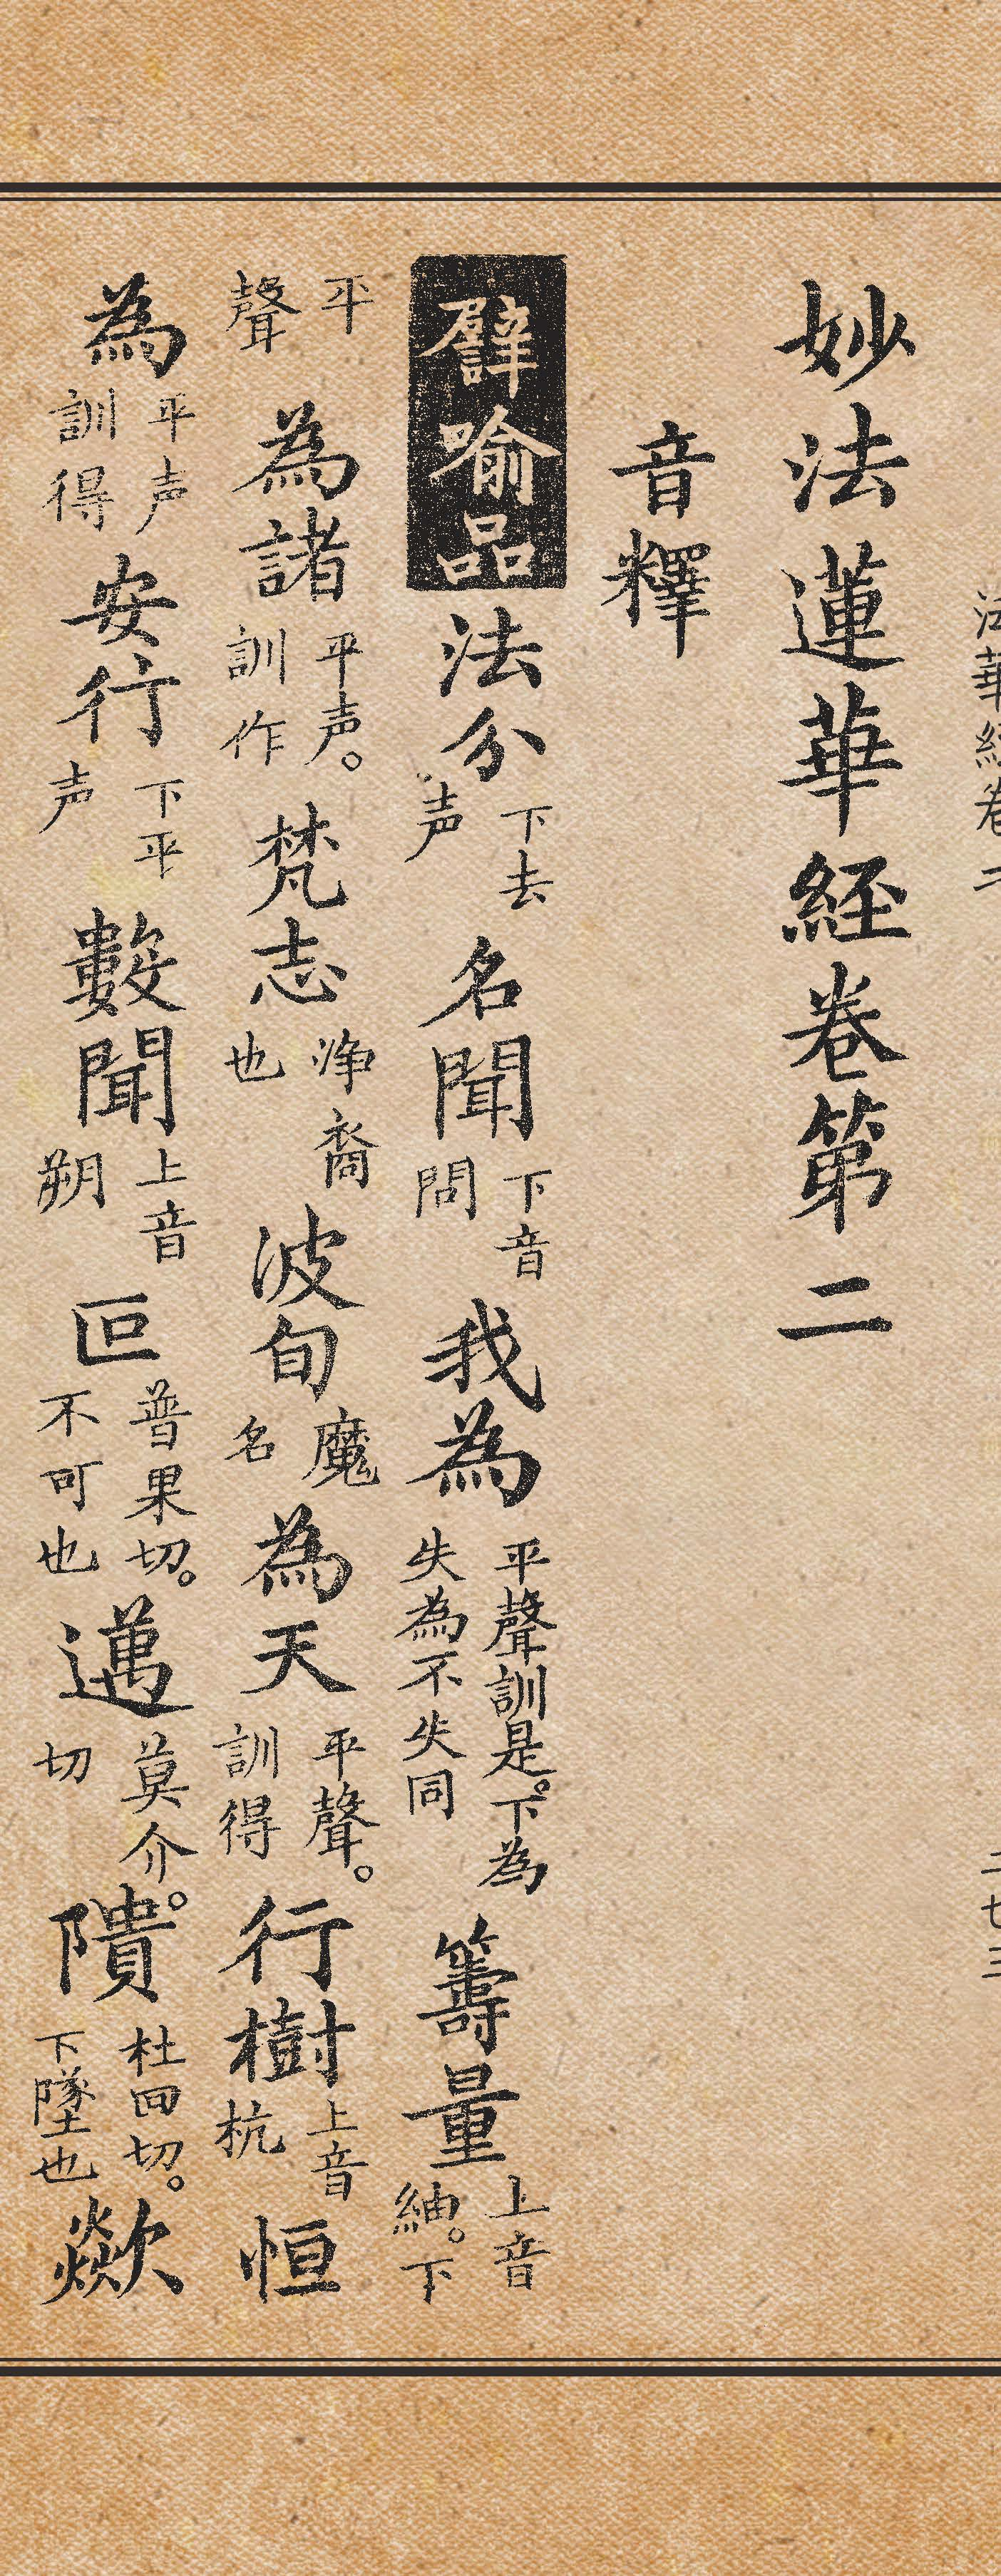 法華經卷二
二七三
妙法蓮華經卷第二
音釋
譬喻品法分下去声名聞下音問我為平聲訓是。下為失為不失同籌量上音紬。下
平聲為諸平声。訓作梵志淨裔也波旬魔名為天平聲。訓得行樹上音杭恒
為平声訓得安行下平声數聞上音朔叵普果切。不可也邁莫介。切隤杜回切。下墜也歘